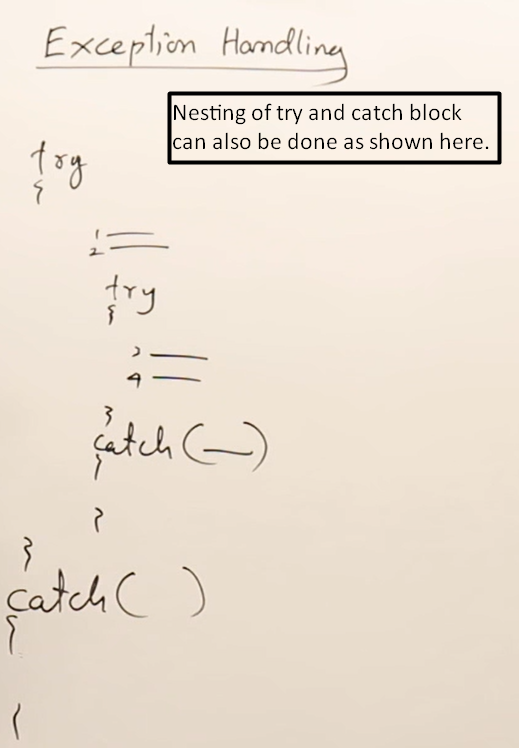 Exception Handling
Nesting of try and catch block
can also be done as shown here.
try
{
1
2
try
{
3
4
}
catch(—)
{
}
}
catch( )
{
{